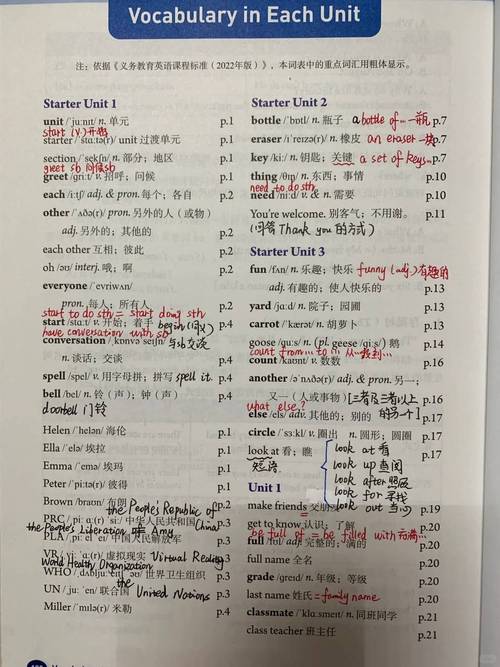 Vocabulary in Each Unit
注：依据《义务教育英语课程标准（2022年版）》，本词表中的重点词汇用粗体显示。
Starter Unit 1
unit /ˈjuːnɪt/ n. 单元 p.1
start (v.) 开始
starter /ˈstɑːtə(r)/ unit 过渡单元 p.1
section /ˈsekʃn/ n. 部分；地区 p.1
greet sb 问候sb
greet /ɡriːt/ v. 招呼；问候 p.1
each /iːtʃ/ adj. & pron. 每个；各自 p.2
other /ˈʌðə(r)/ pron. 另外的人（或物）
adj. 另外的；其他的 p.2
each other 互相；彼此 p.2
oh /əʊ/ interj. 哦；啊 p.2
everyone /ˈevriwʌn/
pron. 每人；所有人 p.2
start to do sth = start doing sth
start /stɑːt/ v. 开始；着手 begin (同义) p.4
have conversation with sb
conversation /ˌkɒnvəˈseɪʃn/ 与sb交谈
n. 谈话；交谈 p.4
spell /spel/ v. 用字母拼；拼写 spell it p.4
bell /bel/ n. 铃（声）；钟（声） p.4
doorbell 门铃
Helen /ˈhelən/ 海伦 p.1
Ella /ˈelə/ 埃拉 p.1
Emma /ˈemə/ 埃玛 p.1
Peter /ˈpiːtə(r)/ 彼得 p.1
Brown /braʊn/ 布朗 p.2
the People's Republic of China
PRC /ˌpiː ɑː(r) ˈsiː/ 中华人民共和国 p.3
the People's Liberation Amy
PLA /ˌpiː el ˈeɪ/ 中国人民解放军 p.3
VR /ˌviː ˈɑː(r)/ 虚拟现实 Virtual Reality p.3
World Health Organization
WHO 世界卫生组织 p.3
UN /ˌjuː ˈen/ 联合国 the United Nations p.3
Miller /ˈmɪlə(r)/ 米勒 p.4
Starter Unit 2
bottle /ˈbɒtl/ n. 瓶子 a bottle of… 一瓶 p.7
eraser /ɪˈreɪzə(r)/ n. 橡皮 an eraser 一块 p.7
key /kiː/ n. 钥匙；关键 a set of keys p.7
thing /θɪŋ/ n. 东西；事情 p.10
need to do sth
need /niːd/ v. & n. 需要 p.10
You're welcome. 别客气；不用谢。 p.11
(回答Thank you的方式)
Starter Unit 3
fun /fʌn/ n. 乐趣；快乐 funny (adj.) 有趣的
adj. 有趣的；使人快乐的 p.13
yard /jɑːd/ n. 院子；园圃 p.13
carrot /ˈkærət/ n. 胡萝卜 p.13
goose /ɡuːs/ n. (pl. geese /ɡiːs/) 鹅 p.14
count from… to… 从…数到…
count /kaʊnt/ v. 数数 p.14
another /əˈnʌðə(r)/ adj. & pron. 另一；
又一（人或事物） [三者及三者以上的另一个] p.16
what else?
else /els/ adv. 其他的；别的 p.17
circle /ˈsɜːkl/ v. 圈出 n. 圆形；圆圈 p.17
look at 看；瞧 p.17
短语
look at 看
look up 查阅
look after 照顾
look for 寻找
look out 当心
Unit 1
make friends 交朋友 p.19
get to know 认识；了解 p.20
be full of = be filled with 充满…
full /fʊl/ adj. 完整的；满的 p.20
full name 全名 p.20
grade /ɡreɪd/ n. 年级；等级 p.20
last name 姓氏 = family name p.20
classmate /ˈklɑːsmeɪt/ n. 同班同学 p.21
class teacher 班主任 p.21